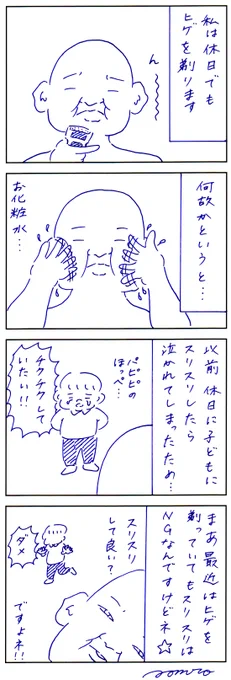 私は休日でも
ヒゲを剃ります
ん
何故かというと…
お化粧水…
以前休日に子どもに
スリスリしたら
泣かれてしまったため…
パピピの
ほっぺ…
チクチクして
いたい!!
まあ最近はヒゲを
剃っていてもスリスリは
NGなんですけどネ☆
スリスリ
して良い?
ダメ
ですよネ!!